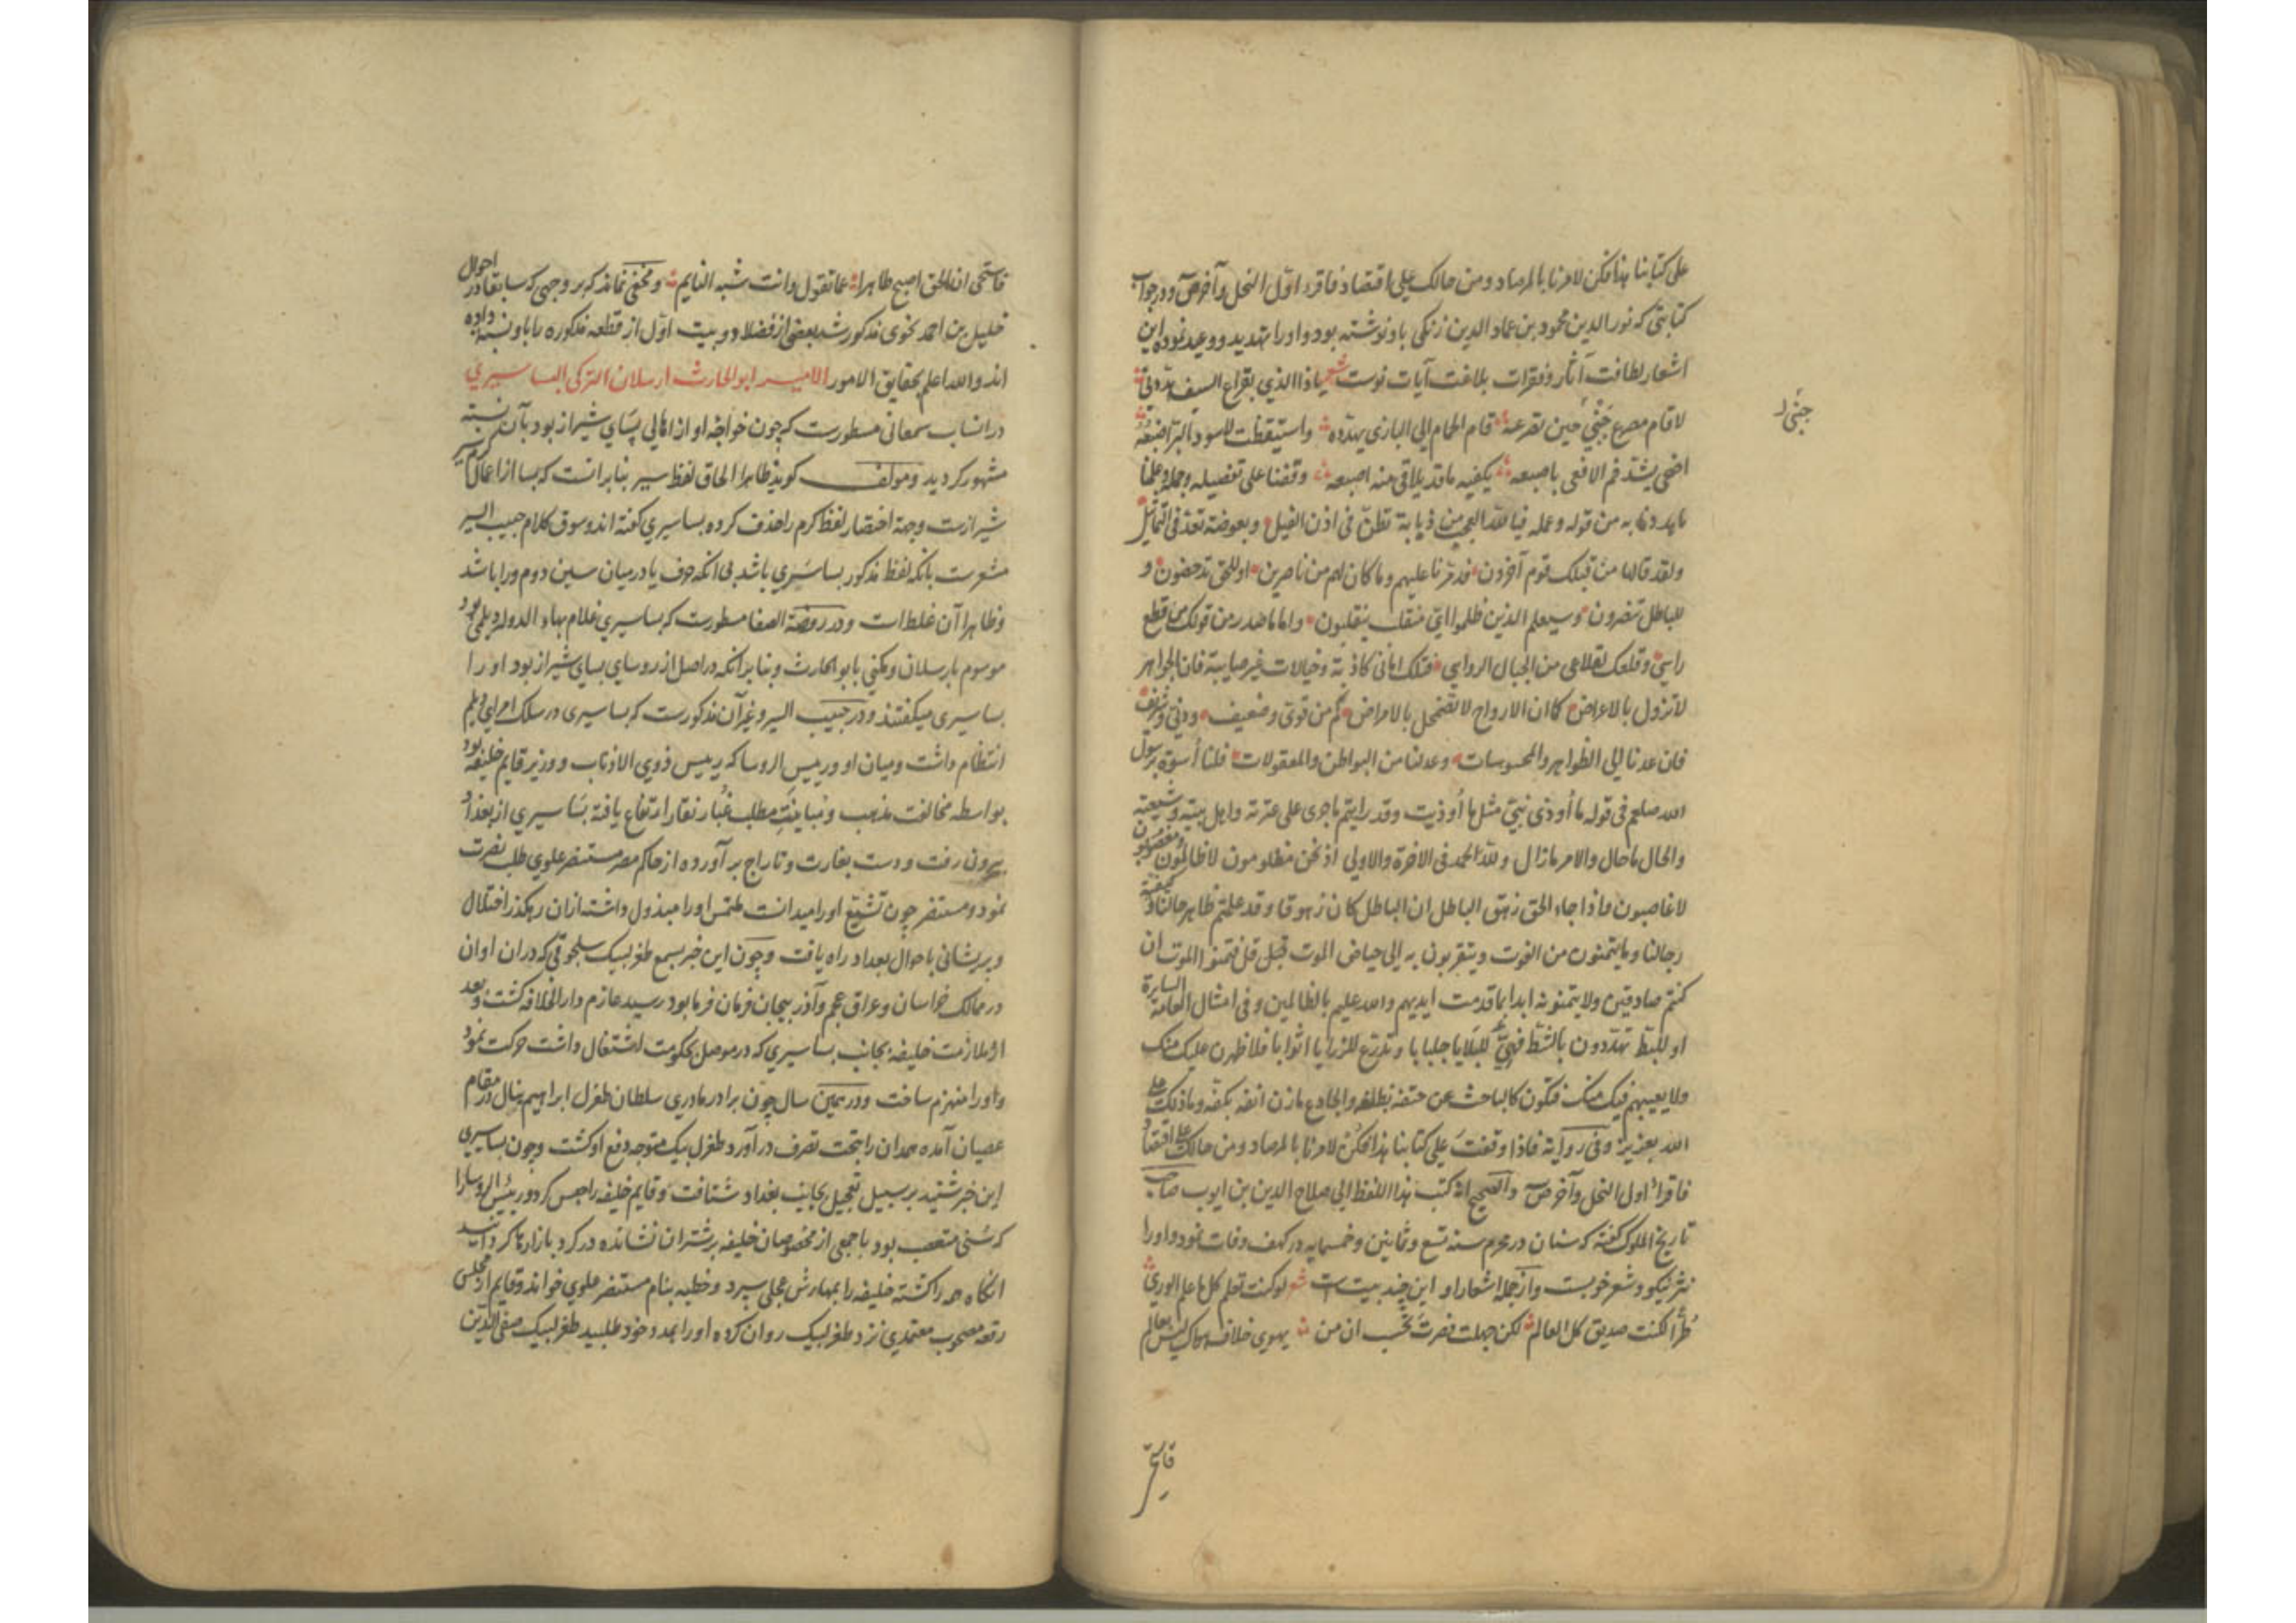 علی کتابنا هذا فکن لامرنا بالمرصاد ومن حالک علی اقتصاد فاقرء اوّل النحل وآخر ص و در جواب
کتابتی که نور الدین محمود بن عماد الدین زنکی باو نوشته بود و او را تهدید و وعید نموده این
اشعار لطافت آثار و فقرات بلاغت آیات نوشت شعر یا ذا الذی بقراع السیف هدّدنی
لا قام مصرع جنبی حین تصرعه قام الحمام الی البازی یهدّده واستیقظت لاسود البر اضبعه
اضحی یسُدّ فم الافعی باصبعه یکفیه ما قد یلاقی منه اصبعه وقفنا علی تفصیله وجمله وعلمنا
ما هددنا به من قوله وعمله فیا للّه العجب من ذبابة تطنّ فی اذن الفیل وبعوضة تعدّ فی التماثیل
ولقد قالها من قبلک قوم آخرون فدمّرنا علیهم وما کان لهم من ناصرین او للحق تدحضون و
للباطل تنصرون وسیعلم الذین ظلموا ایّ منقلب ینقلبون واما ما صدر من قولک من قطع
راسی وقلعک لقلاعی من الجبال الرواسی فتلک امانی کاذبة وخیالات غیر صایبة فان الجواهر
لا تزول بالاعراض کما ان الارواح لا تضمحل بالامراض کم من قوی وضعیف ودنی وشریف
فان عدنا الی الظواهر والمحسوسات وعدلنا من البواطن والمعقولات فلنا اُسوة برسول
الله صلعم فی قوله ما اُوذی نبیّ مثل ما اُوذیت وقد رایتم ما جری علی عترته واهل بیته وشیعته
والحال ما حال والامر ما زال وللّه الحمد فی الاخرة والاولی اذ نحن مظلومون لا ظالمون مغصوبون
لا غاصبون واذا جاء الحق زهق الباطل ان الباطل کان زهوقا وقد علمتم ظاهر حالنا وکیفیة
رجالنا وما یتمنون من الفوت ویتقربون به الی حیاض الموت قل فتمنوا الموت ان
کنتم صادقین ولا یتمنونه ابدا بما قدمت ایدیهم والله علیم بالظالمین وفی امثال العامة السایرة
او للبط تهدّدون بالشط فهیّئ للبلایا جلبابا وتدرّع للرزایا اثوابا فلاظهرن علیک منک
ولا فیک منک فتکون کالباحث عن حتفه بظلفه والجادع مارن انفه بکفه وما ذلک علی
الله بعزیز وفی روایة فاذا وقفتَ علی کتابنا هذا فکُن لامرنا بالمرصاد ومن حالک علی اقتصاد
فاقرأ اول النحل وآخر ص والصحیح انه کتب هذا اللفظ الی صلاح الدین بن ایوب صاحب
تاریخ الملوک گفته که سنان در محرم سنه تسع وثمانین وخمسمایه در کهف وفات نمود و او را
نثر نیکو و شعر خوبست و از جمله اشعار او این چند بیت است شعر لو کنت تعلم کل ما علم الوری
طُرّاً لکنت صدیق کل العالم لکن جهلت فصرتَ تحسب ان من یهوی خلاف هواک لیس بعالم
جنبی
فاستحی
فاستحی ان الحق اصبح ظاهرا عما تقول وانت شبه النایم و مخفی نماند که بر وجهی که سابقا در احوال
خلیل بن احمد نحوی مذکور شد بعضی از فضلا دو بیت اوّل از قطعه مذکوره را باو نسبت داده
اند والله اعلم بحقایق الامور الامیر ابو الحارث ارسلان الترکی البساسیری
در انساب سمعانی مسطورست که چون خواجه او از اهالی پسای شیراز بود بآن نسبت
مشهور گردید و مولف گوید ظاهرا الحاق لفظ سیر بنابر انست که بسا از اعمال گرمسیر
شیرازست وجهة اختصار لفظ کرم را حذف کرده بساسیری گفته اند و سوق کلام حبیب السیر
مشعرست بانکه لفظ مذکور بساسَری باشد بی انکه حرف یا در میان سین دوم و را باشد
و ظاهرا آن غلط است و در روضة الصفا مسطورست که بساسیری غلام بهاء الدوله دیلمی بود
موسوم بارسلان و مکنی بابو الحارث و بنا بر انکه در اصل از روسای بسای شیراز بود او را
بساسیری میکفتند و در حبیب السیر و غیر آن مذکورست که بساسیری در سلک امرای دیلم
انتظام داشت و میان او و رییس الروسا که رییس ذوی الاذناب و وزیر قایم خلیفه بود
بواسطه مخالفت مذهب و مباینتِ مطلب غُبار نقار ارتفاع یافته بَساسیری از بغداد
بیرون رفت و دست بغارت و تاراج بر آورده از حاکم مصر مستنصر علوی طلب نصرت
نمود و مستنصر چون تشیّع او را میدانست ملتمس او را مبذول داشته ازان رهکذر اختلال
و پریشانی باحوال بغداد راه یافت و چون این خبر بسمع طغرلبیک سلجوقی که دران اوان
در ممالک خراسان و عراق عجم و آذربیجان فرمان فرما بود رسید عازم دار الخلافه کشت و بعد
از ملازمت خلیفه بجانب بساسیری که در موصل بحکومت اشتغال داشت حرکت نمود
و او را منهزم ساخت و در همین سال چون برادر مادری سلطان طغرل ابراهیم ینال در مقام
عصیان آمده همدان را بتحت تصرف در آورد طغرل بیک متوجه دفع او کشت و چون بساسیری
این خبر شنید بر سبیل تعجیل بجانب بغداد شتافت و قایم خلیفه را حبس کرد و رئیس الروسا را
که سُنی متعصب بود با جمعی از مخصوصان خلیفه بر شتران نشانده در کرد بازارها کردانید
انکاه همه را کشته خلیفه را بمهارش عجلی سپرد و خطبه بنام مستنصر علوی خواند و قایم از مجلس
رقعه مصحوب معتمدی نزد طغرلبیک روان کرده او را بمدد خود طلبید طغرلبیک صفی الدین